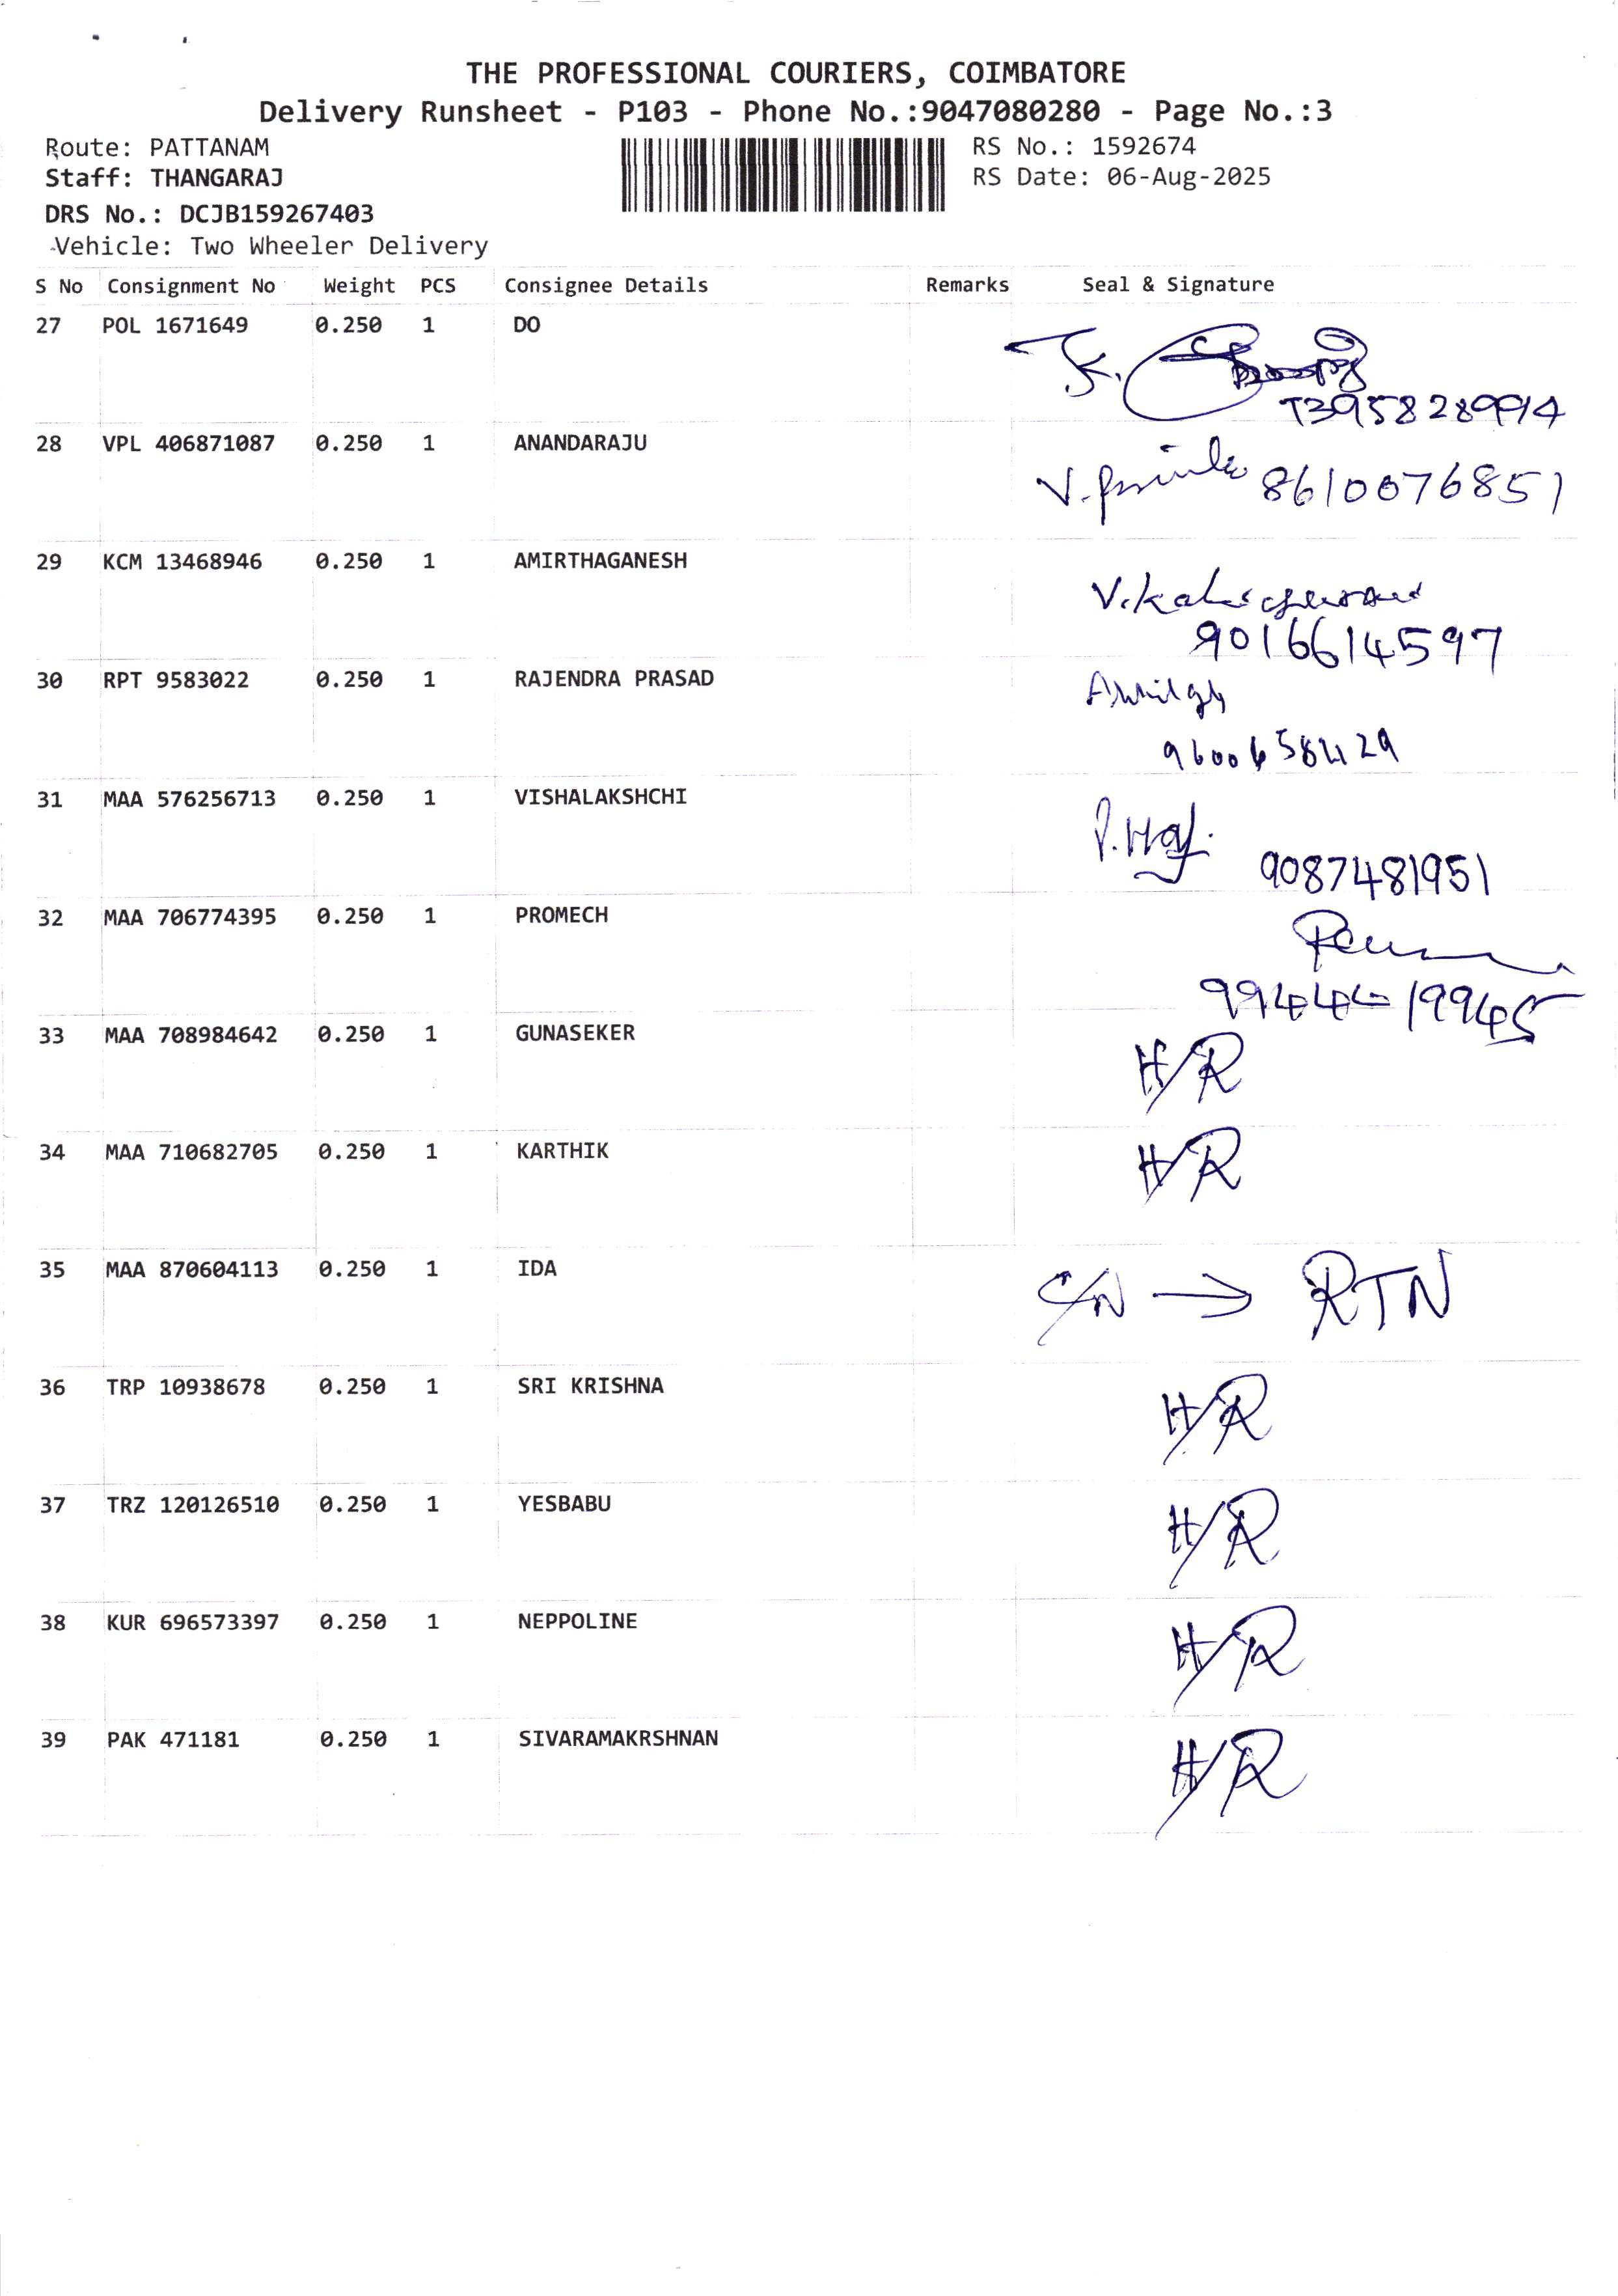 THE PROFESSIONAL COURIERS, COIMBATORE
Delivery Runsheet - P103 - Phone No.:9047080280 - Page No.:3
Route: PATTANAM
RS No.: 1592674
Staff: THANGARAJ
RS Date: 06-Aug-2025
DRS No.: DCJB159267403
Vehicle: Two Wheeler Delivery
S No Consignment No Weight PCS Consignee Details Remarks Seal & Signature
27 POL 1671649 0.250 1 DO
28 VPL 406871087 0.250 1 ANANDARAJU
8610076851
29 KCM 13468946 0.250 1 AMIRTHAGANESH
9016614597
30 RPT 9583022 0.250 1 RAJENDRA PRASAD
31 MAA 576256713 0.250 1 VISHALAKSHCHI
9087481951
32 MAA 706774395 0.250 1 PROMECH
33 MAA 708984642 0.250 1 GUNASEKER H/R
34 MAA 710682705 0.250 1 KARTHIK H/R
35 MAA 870604113 0.250 1 IDA C/N → RTN
36 TRP 10938678 0.250 1 SRI KRISHNA H/R
37 TRZ 120126510 0.250 1 YESBABU H/R
38 KUR 696573397 0.250 1 NEPPOLINE H/R
39 PAK 471181 0.250 1 SIVARAMAKRSHNAN H/R